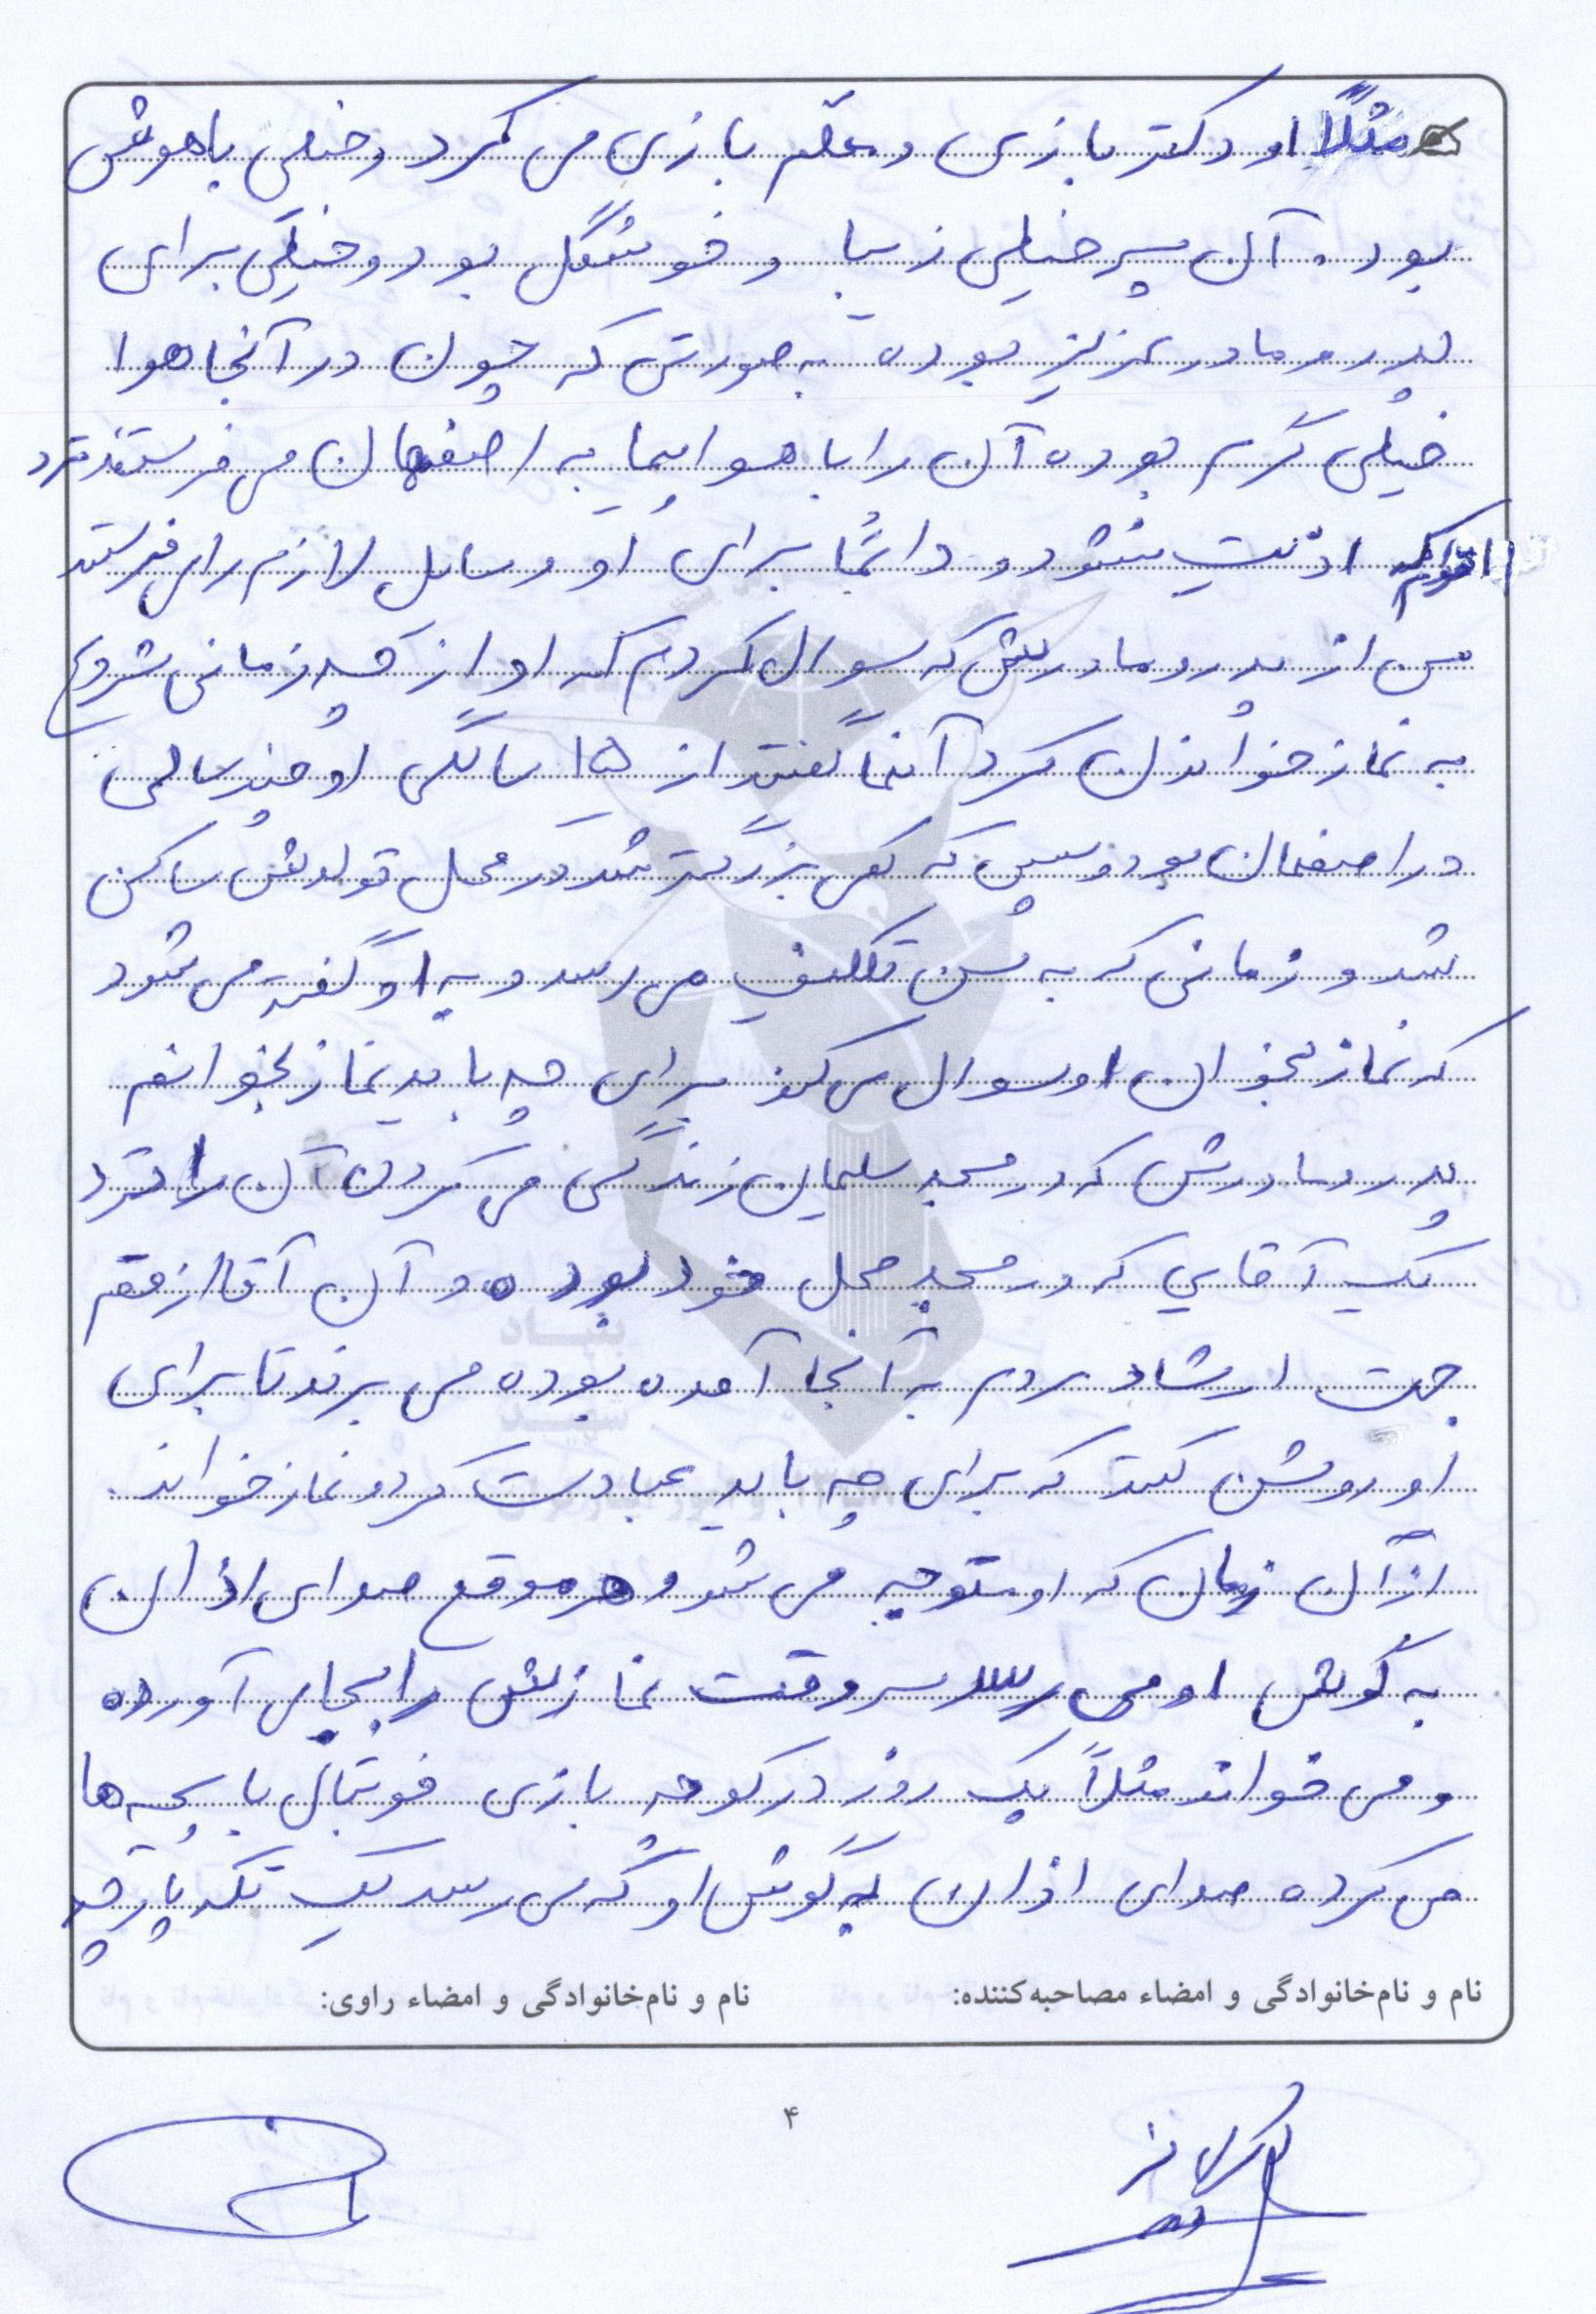 مثلاً او دکتر بازی و معلم بازی می کرد و خیلی باهوش
بود. آن پسر خیلی زیبا و خوشگل بود و خیلی برای
پدر و مادر عزیز بوده به صورتی که چون در آنجا هوا
خیلی گرم بوده آن را با هواپیما به اصفهان می فرستند نزد
اقوام که اذیت نشود و دائماً برای او وسایل لازم را می فرستند
من از پدر و مادرش که سوال کردم که او از چه زمانی شروع
به نماز خواندن کرد آنها گفتند از ۱۵ سالگی او چند سالی
در اصفهان بود و سپس که کمی بزرگتر شد در محل تولدش ساکن
شد و زمانی که به سن تکلیف می رسد و به او گفته می شود
که نماز بخوان او سوال می کند برای چه باید نماز بخوانم
پدر و مادرش که در مسجد سلیمان زندگی می کردن آن را نزد
یک آقایی که در مسجد محل خود بوده و آن آقا از قم
جهت ارشاد مردم به آنجا آمده بوده می برند تا برای
او روشن کند که برای چه باید عبادت کرد و نماز خواند.
از آن زمان که او متوجه می شد و هر موقع صدای اذان
به گوش او می رسد سر وقت نمازش را بجای آورده
و می خواند مثلاً یک روز در کوچه بازی فوتبال با بچه ها
می کرده صدای اذان به گوش او که می رسد یک تکه پارچه
نام و نام‌خانوادگی و امضاء مصاحبه‌کننده:
نام و نام‌خانوادگی و امضاء راوی:
۴